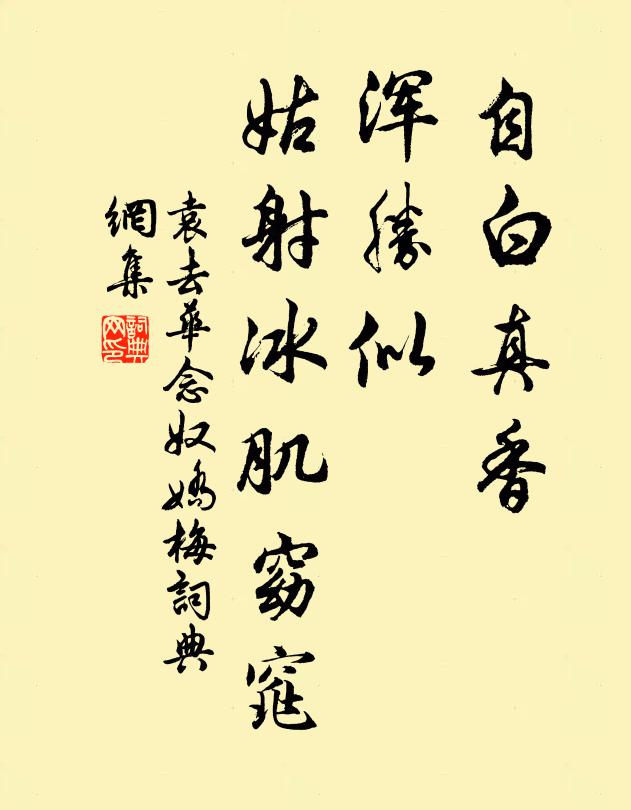 自白真香
渾勝似
姑射冰肌窈窕
袁去華念奴嬌梅詞典
網集
詞典
网印